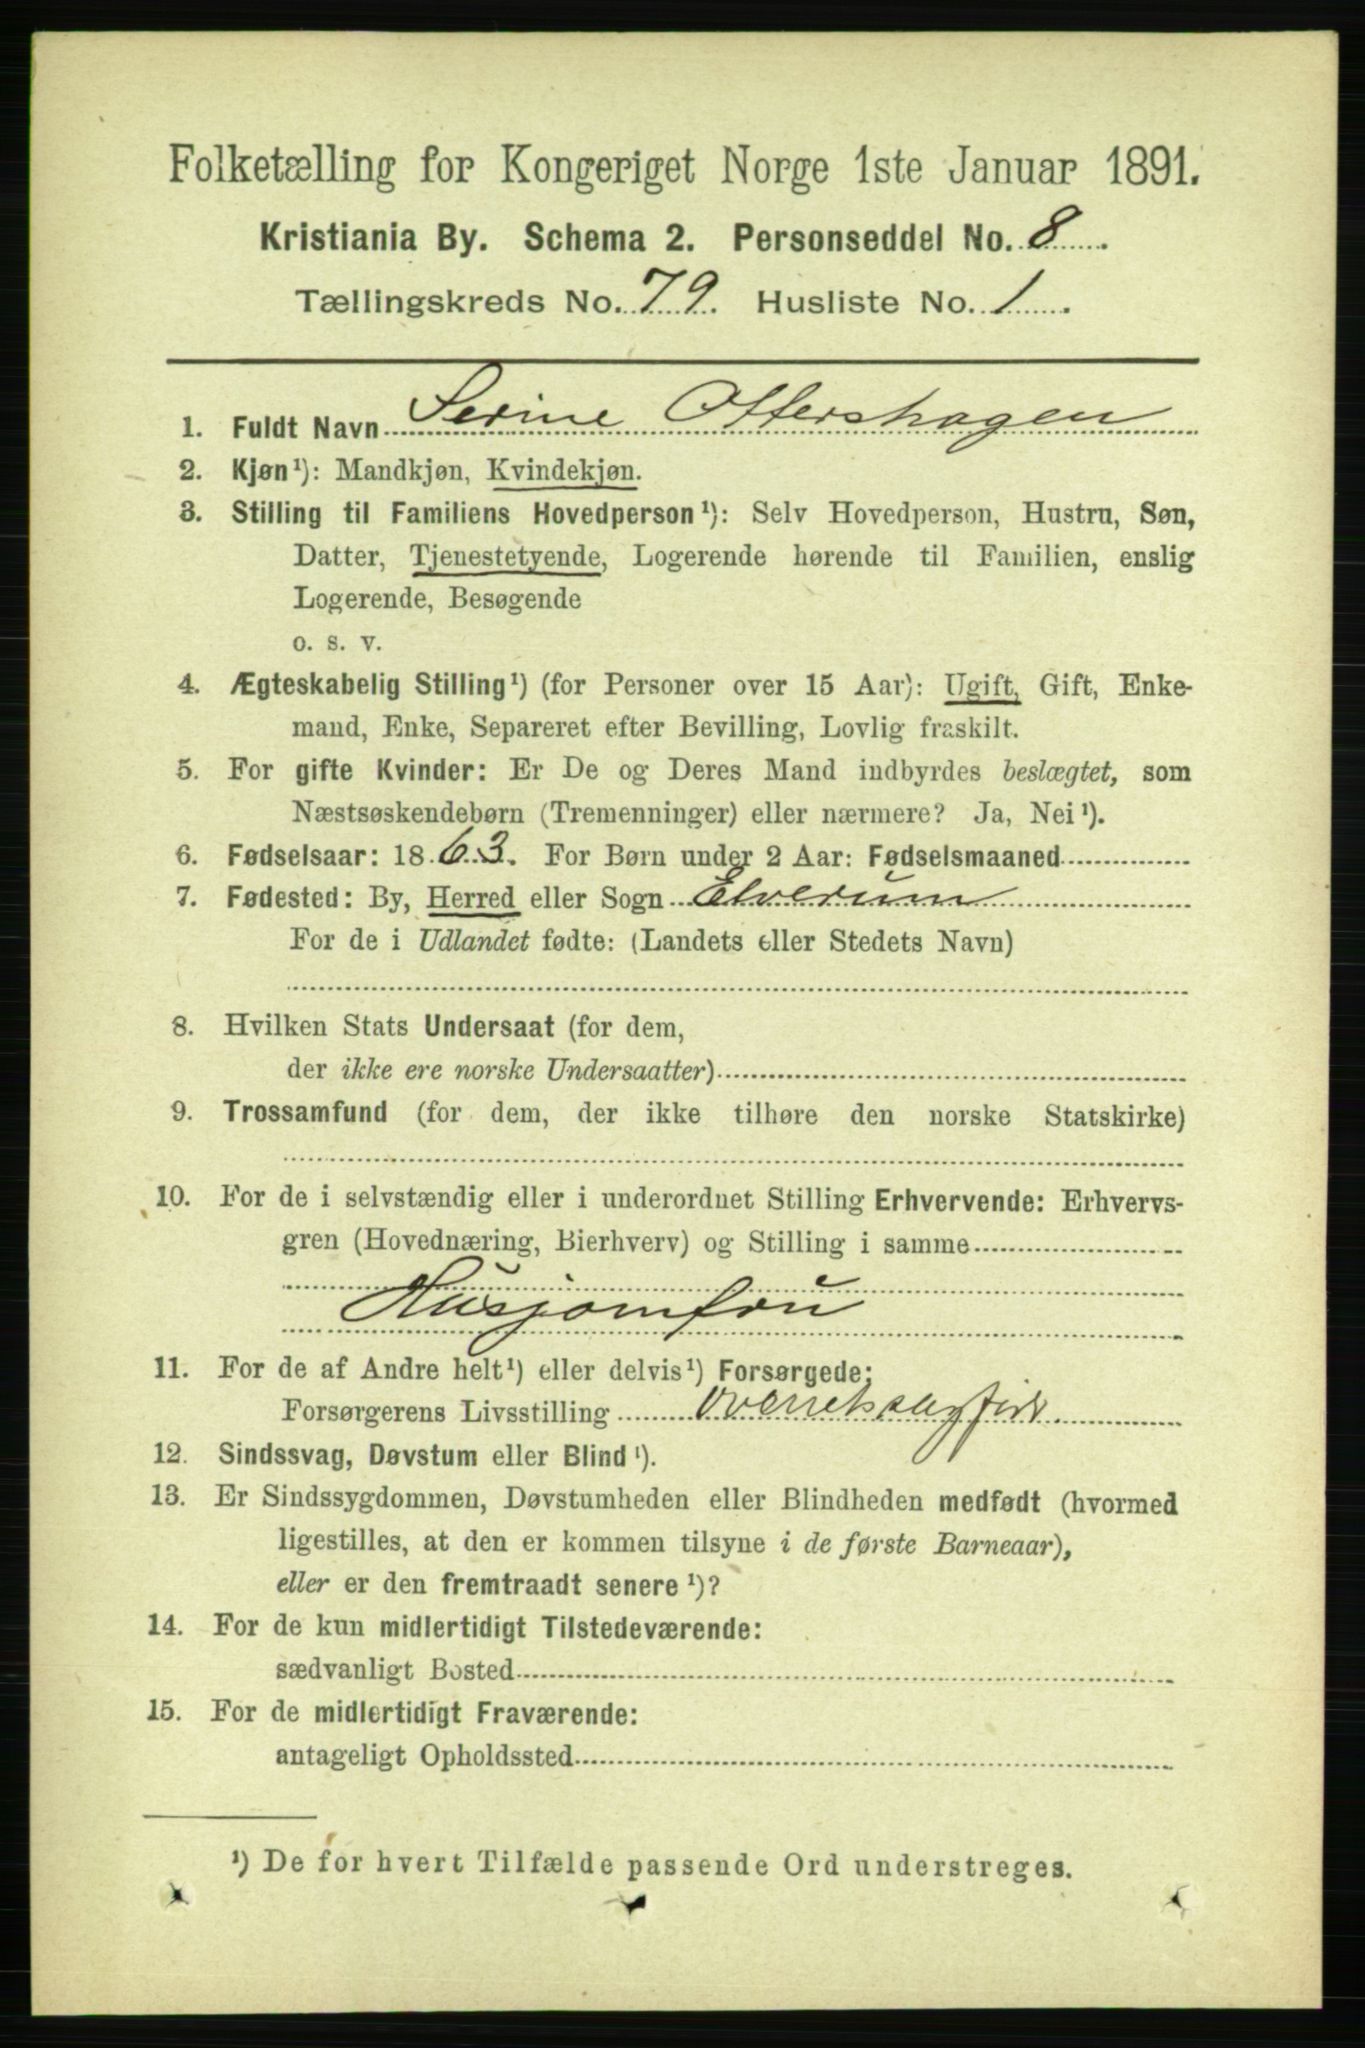 Folketælling for Kongeriget Norge 1ste Januar 1891.
Kristiania By. Schema 2. Personseddel No. 8.
Tællingskreds No. 79. Husliste No. 1.
1. Fuldt Navn Serine Ottershagen
2. Kjøn¹): Mandkjøn, Kvindekjøn.
3. Stilling til Familiens Hovedperson¹): Selv Hovedperson, Hustru, Søn,
Datter, Tjenestetyende, Logerende hørende til Familien, enslig
Logerende, Besøgende
o. s. v.
4. Ægteskabelig Stilling¹) (for Personer over 15 Aar): Ugift, Gift, Enke-
mand, Enke, Separeret efter Bevilling, Lovlig fraskilt.
5. For gifte Kvinder: Er De og Deres Mand indbyrdes beslægtet, som
Næstsøskendebørn (Tremenninger) eller nærmere? Ja, Nei¹).
6. Fødselsaar: 1863. For Børn under 2 Aar: Fødselsmaaned
7. Fødested: By, Herred eller Sogn Elverum
For de i Udlandet fødte: (Landets eller Stedets Navn)
8. Hvilken Stats Undersaat (for dem,
der ikke ere norske Undersaatter)
9. Trossamfund (for dem, der ikke tilhøre den norske Statskirke)
10. For de i selvstændig eller i underordnet Stilling Erhvervende: Erhvervs-
gren (Hovednæring, Bierhverv) og Stilling i samme
Husjomfru
11. For de af Andre helt¹) eller delvis¹) Forsørgede:
Forsørgerens Livsstilling
12. Sindssvag, Døvstum eller Blind¹).
13. Er Sindssygdommen, Døvstumheden eller Blindheden medfødt (hvormed
ligestilles, at den er kommen tilsyne i de første Barneaar),
eller er den fremtraadt senere¹)?
14. For de kun midlertidigt Tilstedeværende:
sædvanligt Bosted
15. For de midlertidigt Fraværende:
antageligt Opholdssted
¹) De for hvert Tilfælde passende Ord understreges.